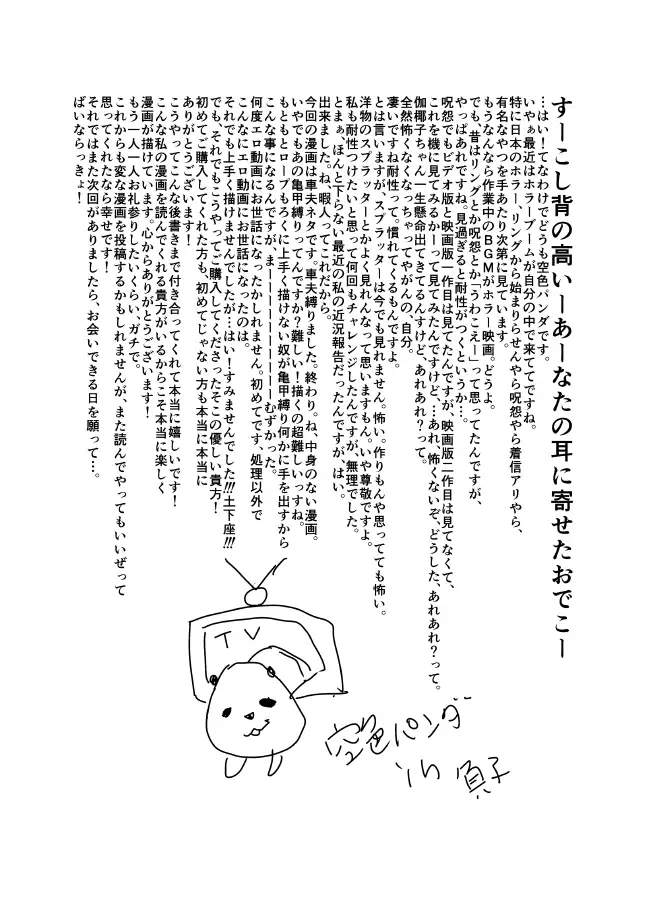 すーこし背の高いーあーなたの耳に寄せたおでこー
…はい！てなわけでどうも空色パンダです。
いやぁ最近はホラーブームが自分の中で来ててですね。
特に日本のホラー、リングから始まりらせんやら呪怨やら着信アリやら、
有名なやつを手あたり次第に見ています。
もうなんなら作業中のＢＧＭがホラー映画。どうよ。
でも、昔はリングとか呪怨とか「うわこえー」って思ってたんですが、
やっぱあれですね。見過ぎると耐性がつくというか…。
呪怨でもビデオ版と映画版一作目は見てたんですが、映画版二作目は見てなくて、
これを機に見てみるかーって見てみたんですけど…あれ、怖くないぞ、どうした、あれあれ？って。
伽椰子ちゃん一生懸命出てきてるんすけど、あれあれ？って。
全然怖くなくなっちゃってやがんの自分。
凄いですね耐性って。慣れてくるもんですよ。
とは言いますが、スプラッターは今でも見れません。怖い。作りもんや思ってても怖い。
洋物のスプラッターとかよく見れんなって思いますもん。いや尊敬ですよ。
私も耐性つけたいと思って何回もチャレンジしたんですが、無理でした。
とまぁ、ほんと下らない最近の私の近況報告だったんですが、はい。
出来ました。ね、暇人ってこれだから。
今回の漫画は車夫ネタです。車夫縛りました。終わり。ね、中身のない漫画。
いやでもあの亀甲縛りってんですか？難しい！描くの超難しいっすね。
もともとロープもろくに上手く描けない奴が亀甲縛り何かに手を出すから
こんな事になるんですが、まーーーーーーーーーーーむずかった。
何度エロ動画にお世話になったかしれません。初めてです、処理以外で
こんなにエロ動画にお世話になったのは。
それでも上手く描けませんでしたが…はい！すみませんでした!!!土下座!!!
でも、それでもこうやってご購入してくださったそこの優しい貴方！
初めてご購入してくれた方も、初めてじゃない方も本当に本当に
ありがとうございます！
こうやってこんな後書きまで付き合ってくれて本当に嬉しいです！
こんな私の漫画を読んでくれる貴方がいるからこそ本当に楽しく
漫画が描けています。心からありがとうございます！
もう一人一人お礼参りしたいくらい、ガチで。
これからも変な漫画を投稿するかもしれませんが、また読んでやってもいいぜって
思ってくれたなら幸せです！
それではまた次回がありましたら、お会いできる日を願って…。
ばいならっきょ！
TV
空色パンダ
in 貞子